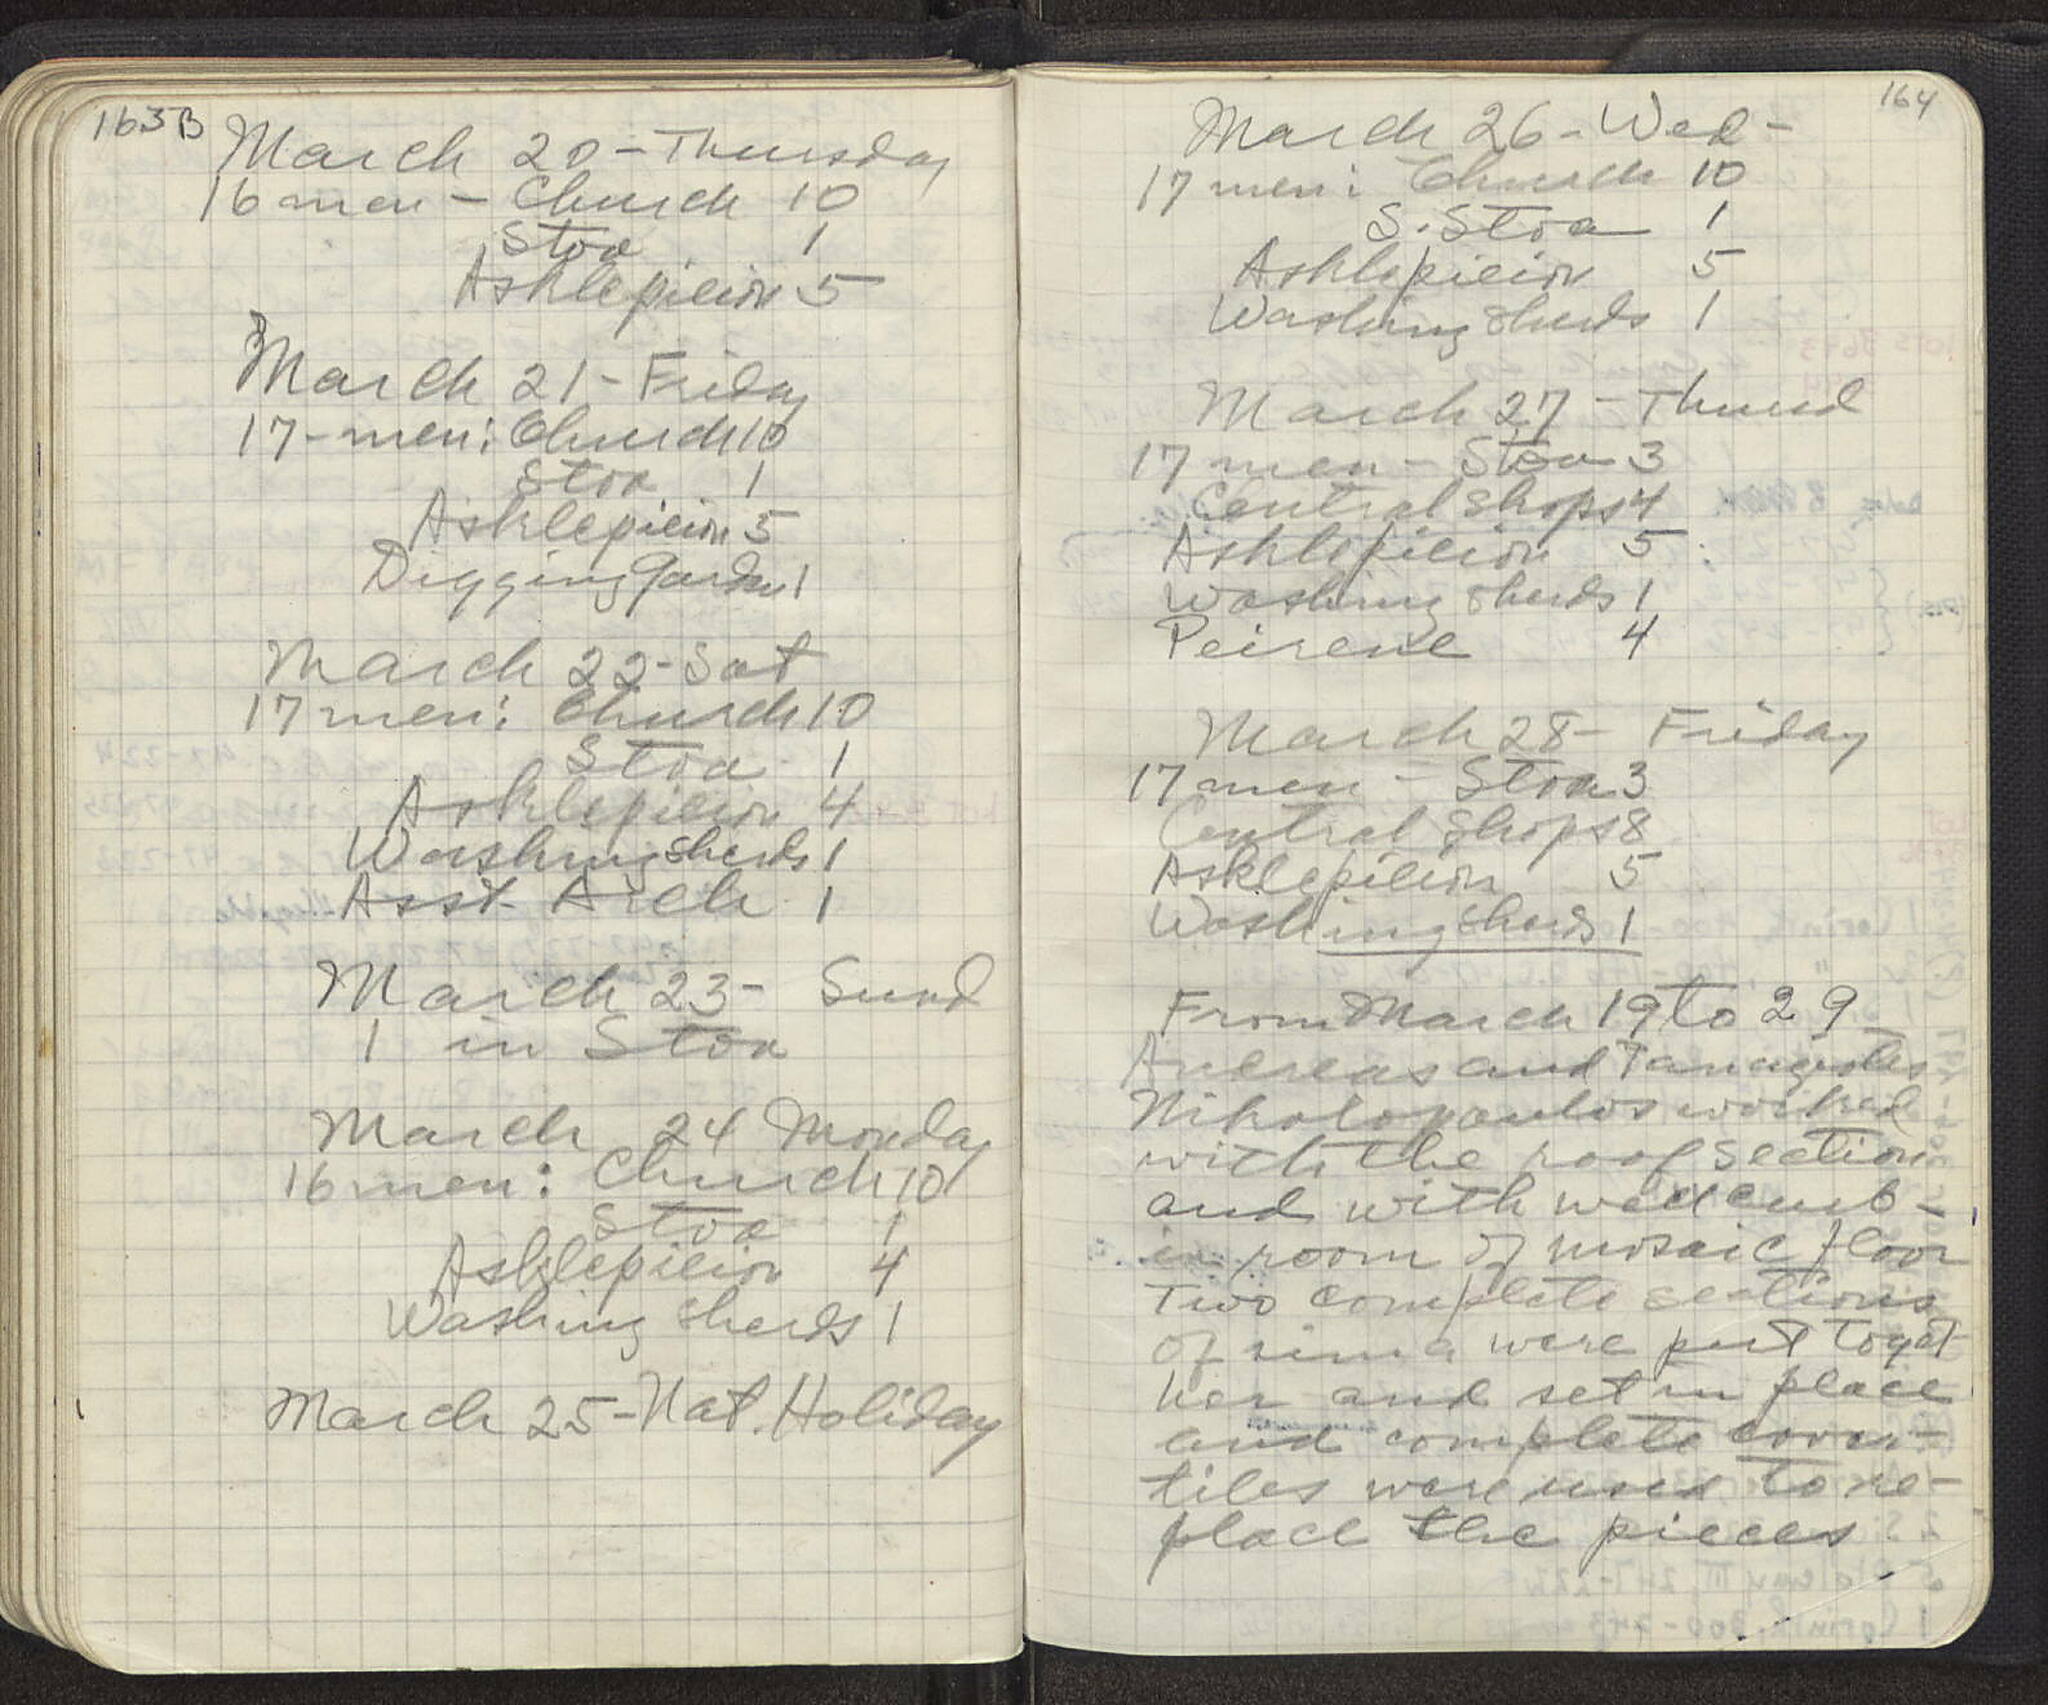 163B
March 20 - Thursday
16 men - Church 10
Stoa 1
Asklepieion 5
March 21 - Friday
17 - men: Church 10
Stoa 1
Asklepieion 5
Digging Garden 1
March 22 - Sat
17 men: Church 10
Stoa 1
Asklepieion 4
Washing sherds 1
Asst. Arch 1
March 23 - Sund
1 in Stoa
March 24 Monday
16 men: Church 10
Stoa 1
Asklepieion 4
Washing sherds 1
March 25 - Nat. Holiday
164
March 26 - Wed -
17 men: Church 10
S. Stoa 1
Asklepieion 5
Washing sherds 1
March 27 - Thursd
17 men - Stoa 3
Central Shops 4
Asklepieion 5
Washing sherds 1
Peirene 4
March 28 - Friday
17 men - Stoa 3
Central Shops 8
Asklepieion 5
Washing sherds 1
From March 19 to 29
and Panagiotes
Nikolopoulos worked
with the roof section
and with well curb -
in room of mosaic floor
Two complete sections
of sima were put toget
her and set in place
and complete cover-
tiles were used to re-
place the pieces